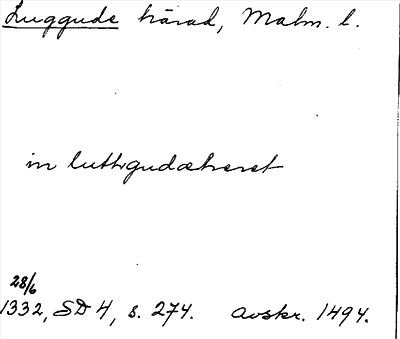 Luggude härad, Malm. l.
in luthgudæheret
28/6
1332, SD 4, s. 274. Avskr. 1494.